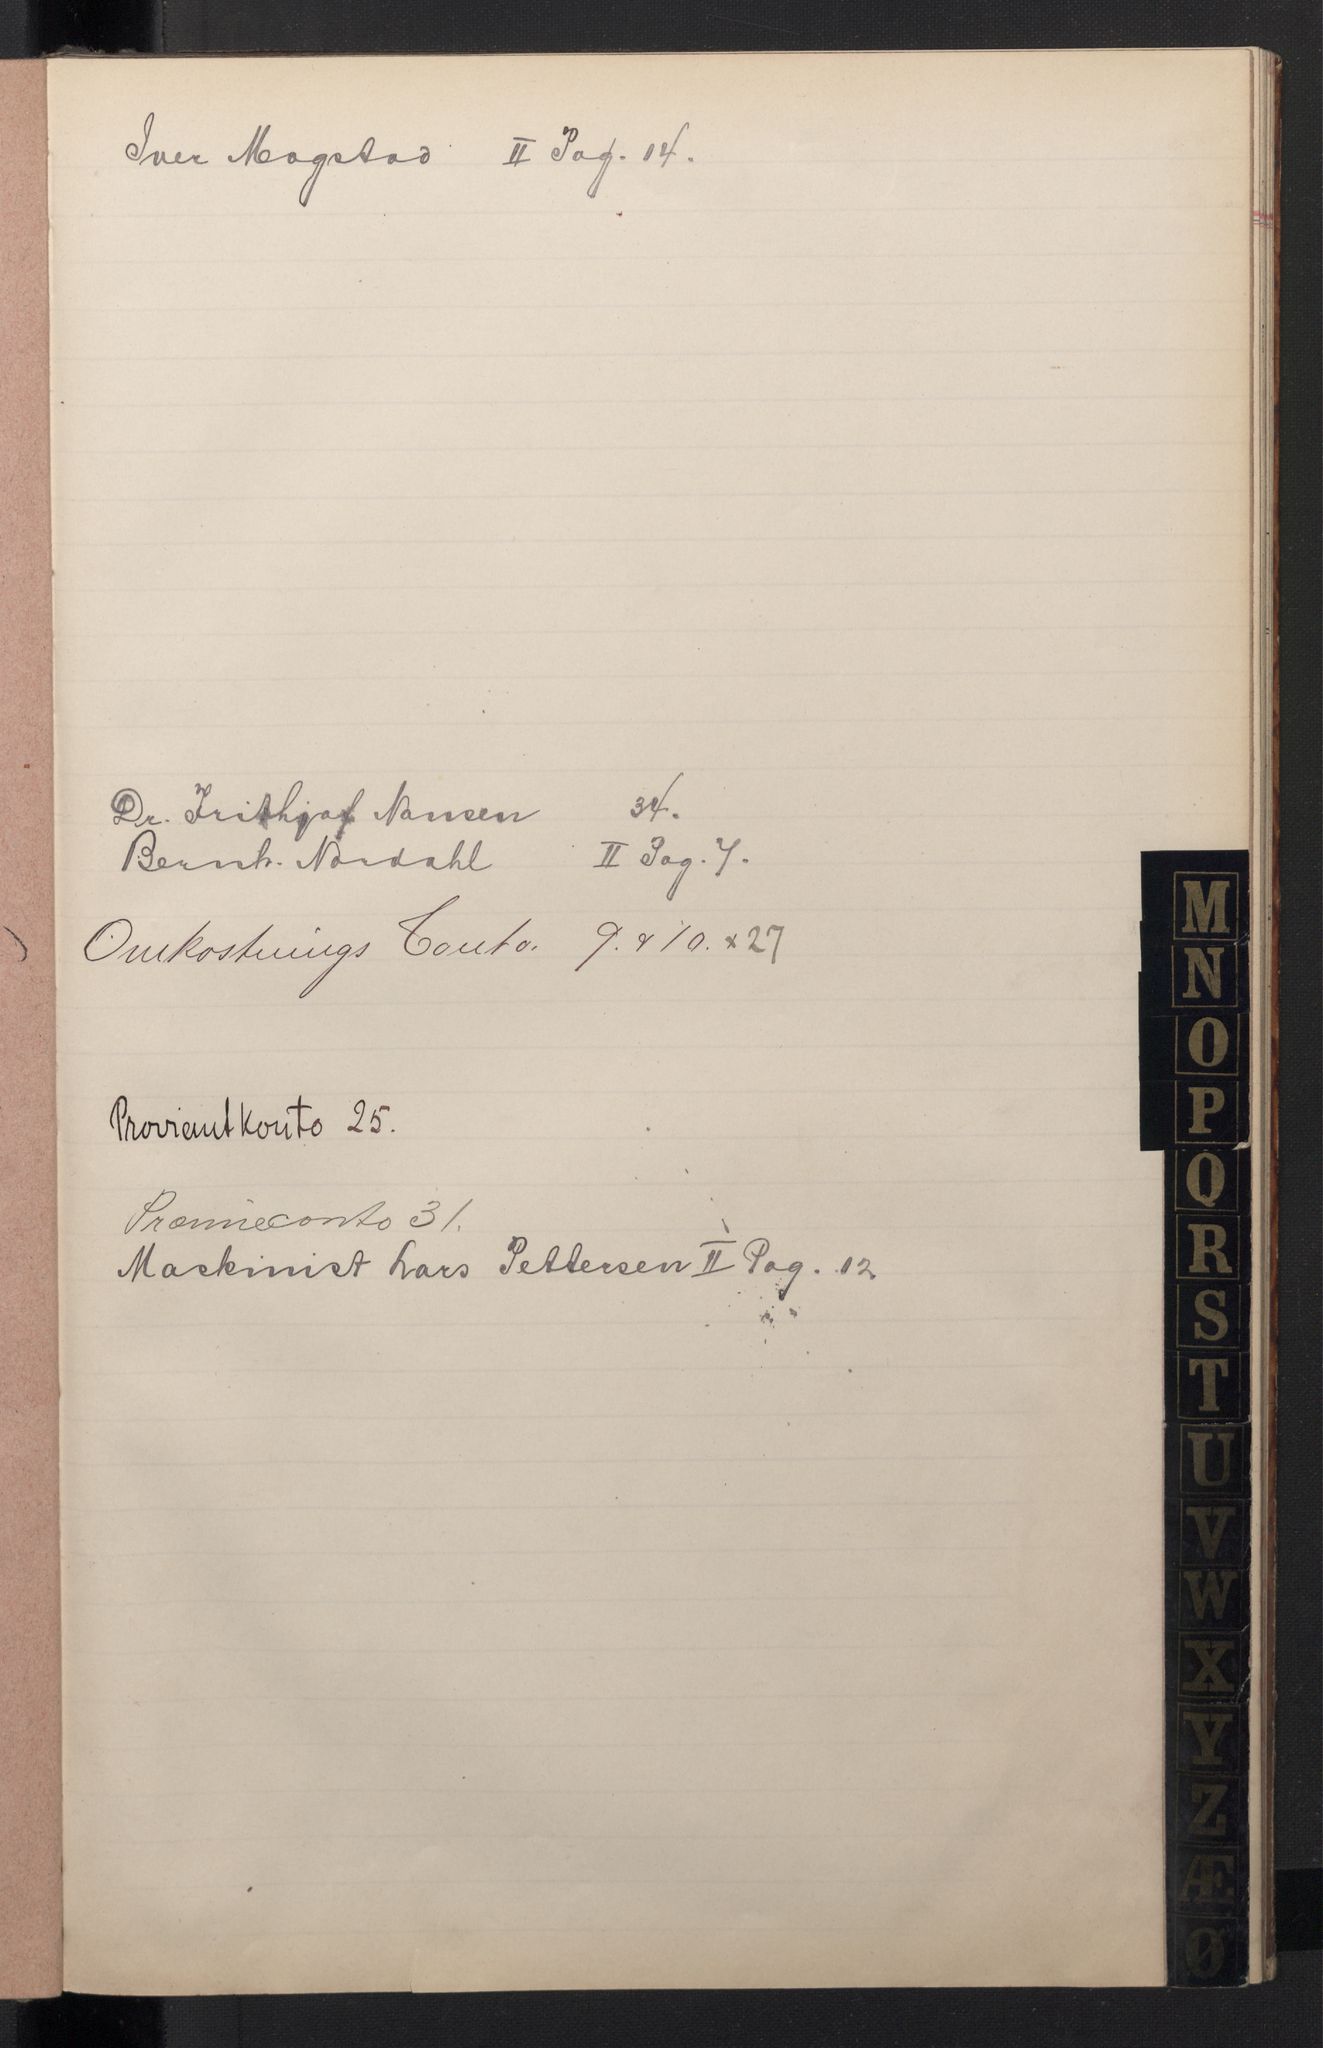 Iver Mogstad II Pag. 14.
Dr. Frithjof Nansen 34.
Bernh. Nordahl II Pag. 7.
Omkostnings Conto. 9. & 10. & 27
Proviantkonto 25.
Præmieconto 31.
Maskinist Lars Pettersen II Pag. 12
M
N
O
P
Q
R
S
T
U
V
W
X
Y
Z
Æ
Ø